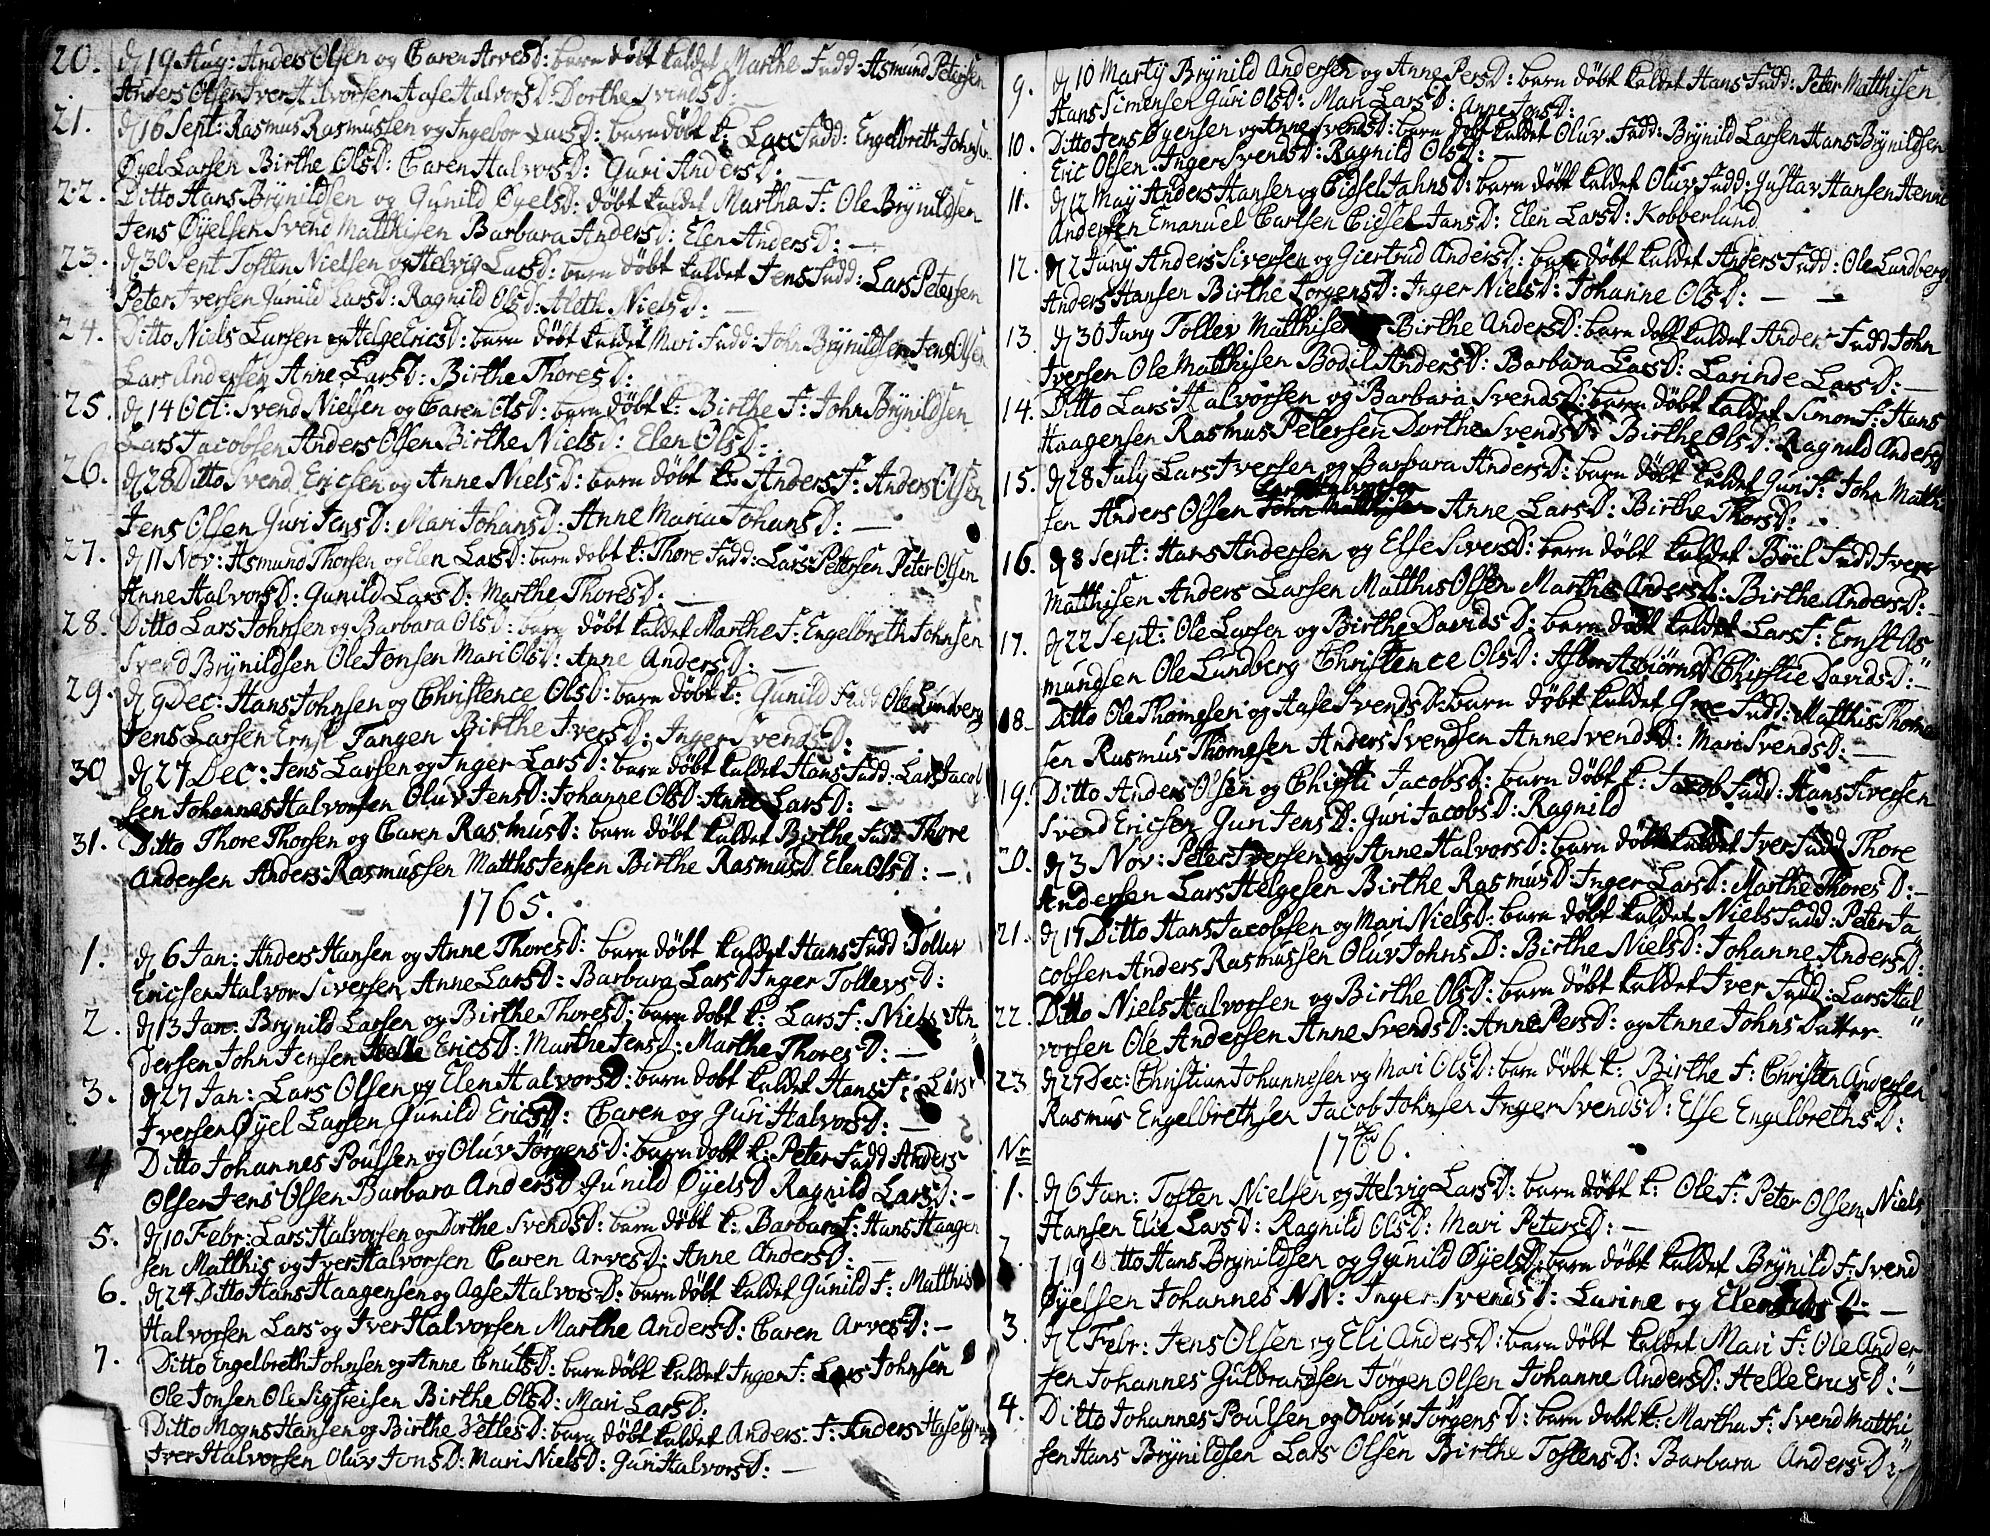 20. d 19 Aug: Anders Olsen og Caren ArvesD: barn døbt kaldet Marthe Fadd: Asmund Petersen
Anders Olsen Iver Halvorsen Aase HalvorsD: Dorthe SvendsD:
21. d 16 Sept: Rasmus Rasmussen og Ingebor LarsD: barn døbt k: Lars Fadd: Engelbreth Johnsen
Øyel Larsen Birthe OlsD: Caren HalvorsD: Guri AndersD: —
22. Ditto Hans Brynildsen og Gunild ØyelsD: døbt kaldet Martha F: Ole Brynildsen
Jens Øyelsen Svend Matthisen Barbara AndersD: Elen AndersD: —
23. d 30 Sept Tosten Nielsen og Helvig LarsD: barn døbt kaldet Jens Fadd: Lars Petersen
Peter Iversen Gunild LarsD: Ragnild OlsD: Aleth NielsD: —
24. Ditto Niels Larsen og Helge EricsD: barn døbt kaldet Mari Fadd: John Brynildsen Jens Olsen
Lars Andersen Anne LarsD: Birthe ThoresD:
25. d 14 Oct: Svend Nielsen og Caren OlsD: barn døbt k: Birthe F: John Brynildsen
Lars Jacobsen Anders Olsen Birthe NielsD: Elen OlsD:
26. d 28 Ditto Svend Ericsen og Anne NielsD: barn døbt k: Anders F: Anders Olsen
Jens Olsen Guri JensD: Mari JohansD: Anne Maria JohansD: —
27. d 11 Nov: Asmund Thorsen og Elen LarsD: barn døbt k: Thore Fadd: Lars Petersen Peter Olsen
Anne HalvorsD: Gunild LarsD: Marthe ThoresD. —
28. Ditto Lars Johnsen og Barbara OlsD: barn døbt kaldet Marthe F: Engelbreth Johnsen
Svend Brynildsen Ole Jonsen Mari OlsD: Anne AndersD: —
29. d 9 Dec: Hans Johnsen og Christence OlsD: barn døbt k: Gunild Fadd Ole Lundberg
Jens Larsen Ernst Tangen Birthe IversD: Inger SvendsD: —
30 d 27 Dec: Jens Larsen og Inger LarsD: barn døbt kaldet Hans Fadd: Lars Jacob
sen Johannes Halvorsen Oluv JensD: Johanne OlsD: Anne LarsD: —
31. Ditto Thore Thorsen og Caren RasmusD: barn døbt kaldet Birthe Fadd Thore
Andersen Anders Rasmussen Matths Jensen Birthe RasmusD Elen OlsD: —
1765.
1. d 6 Jan: Anders Hansen og Anne ThoresD: barn døbt kaldet Hans Fadd: Tollev
Ericsen Halvor Siversen Anne LarsD: Barbara LarsD Inger TollevsD:
2. d 13 Jan: Brynild Larsen og Birthe ThoresD: barn døbt k: Lars F: Niels An
dersen John Jensen Helle EricsD: Marthe JensD: Marthe ThoresD: —
3. d 27 Jan: Lars Olsen og Elen HalvorsD: barn døbt kaldet Hans F: Lars
Iversen Øyel Larsen Gunild EricsD: Caren og Guri HalvorsD: —
4 Ditto Johannes Poulsen og Oluv JørgensD: barn døbt k: Peter Fadd Anders
Olsen Jens Olsen Barbara AndersD: Gunild ØyelsD Ragnild LarsD: —
5. d 10 Febr: Lars Halvorsen og Dorthe SvendsD: barn døbt k: Barbara F: Hans Haagen
sen Matthis og Iver Halvorsen Caren ArvesD: Anne AndersD: —
6. d 24 Ditto Hans Haagensen og Aase HalvorsD: barn døbt kaldet Gunild F: Matthis
Halvorsen Lars og Iver Halvorsen Marthe AndersD: Caren ArvesD: —
7. Ditto Engelbreth Johnsen og Anne CnutsD: barn døbt kaldet Inger F: Lars Johnsen
Ole Jonsen Ole Sigfreisen Birthe OlsD: Mari LarsD:
Ditto Mogns Hansen og Birthe VetlesD: barn døbt kaldet Anders F: Anders
Iver Halvorsen Oluv JonsD: Mari NielsD: Guri HalvorsD: —
9. d 10 Martÿ Brynild Andersen og Anne PersD: barn døbt kaldet Hans Fadd: Peter Matthisen
Hans Simensen Guri OlsD: Mari LarsD: Anne JonsD:
10. Ditto Jens Øyensen og Anne SvendsD: barn døbt kaldet Oluv Fadd: Brynild Larsen Hans Brynildsen
Eric Olsen Inger SvendsD: Ragnild OlsD: —
11. d 12 Maÿ Anders Hansen og Cidsel JahnsD: barn døbt kaldet Oluv Fadd: Gustav Hansen Henne
Andersen Emanuel Carlsen Cidsel JansD: Elen LarsD: Kobberland
12. d 2 Junÿ Anders Siversen og Giertrud AndersD: barn døbt kaldet Anders Fadd: Ole Lundberg
Anders Hansen Birthe JørgensD: Inger NielsD: Johanne OlsD: — —
13 d 30 Junÿ Tollev Matthisen Birthe AndersD: barn døbt kaldet Anders Fadd John
Iversen Ole Matthisen Bodil AndersD: Barbara LarsD: Larinde LarsD: —
14. Ditto Lars Halvorsen og Barbara SvendsD: barn døbt kaldet Simon F: Hans
Haagensen Rasmus Petersen Dorthe SvendsD: Birthe OlsD: Ragnild AndersD
15. d 28 July Lars Iversen og Barbara AndersD: barn døbt kaldet Guri F: John Matthi
Lars Halvorsen
sen Anders Olsen John Matthisen Anne LarsD: Birthe ThorsD: —
16. d 8 Sept: Hans Andersen og Else SiversD: barn døbt kaldet Böel Fadd Iver
Matthisen Anders Larsen Matthis Olsen Marthe AndersD: Birthe AndersD: —
17. d 22 Sept: Ole Larsen og Birthe DavidsD: barn døbt kaldet Lars F: Ernst As
mundsen Ole Lundberg Christence OlsD: Asbor AsbiørnsD Chirstie DavidsD: —
18. Ditto Ole Thomesen og Aase SvendsD: barn døbt kaldet Fadd: Matthis Thome
sen Rasmus Thomesen Anders Svendsen Anne SvendsD: Mari SvendsD: —
19. Ditto Anders Olsen og Chirsti JacobsD: barn døbt k: Jacob Fadd: Hans Siversen
Svend Ericsen Guri JensD: Guri JacobsD: Ragnild
20. d 3 Nov: Peter Iversen og Anne HalvorsD: barn døbt kaldet Iver Fadd Thore
Andersen Lars Helgesen Birthe RasmusD Inger LarsD: Marthe ThoresD: —
21. d 17 Ditto Hans Jacobsen og Mari NielsD: barn døbt kaldet Niels Fadd: Peter Ja
cobsen Anders Rasmussen Oluv JohnsD: Birthe NielsD: Johanne AndersD:
22. Ditto Niels Halvorsen og Birthe OlsD: barn døbt kaldet Iver Fadd: Lars Hal
vorsen Ole Andersen Anne SvendsD: Anne PersD: og Anne Johns Datter
23 d 27 Dec: Christian Johannesen og Mari OlsD: barn døbt k: Birthe F: Christen Andersen
Rasmus Engelbrethsen Jacob Johnsen Inger SvendsD: Else EngelbrethsD:
Nr 1766.
1. d 6 Jan: Tosten Nielsen og Helvig LarsD: barn døbt k: Ole F: Peter Olsen Niels
Hansen Elie LarsD: Ragnild OlsD: Mari PetersD: —
2 19 Ditto Hans Brynildsen og Gunild ØyelsD: barn døbt kaldet Brynild F: Svend
Øyelsen Johannes NN: Inger SvendsD: Larine og Elen LarsD: —
3. d 2 Febr: Jens Olsen og Eli AndersD: barn døbt kaldet Mari F: Ole Ander
sen Johannes Gulbrandsen Jørgen Olsen Johanne AndersD: Helle EricsD: —
4. Ditto Johannes Poulsen og Oluv JørgensD: barn døbt k: Martha F: Svend Matthi
sen Hans Brynildsen Lars Olsen Birthe TostensD: Barbara AndersD: